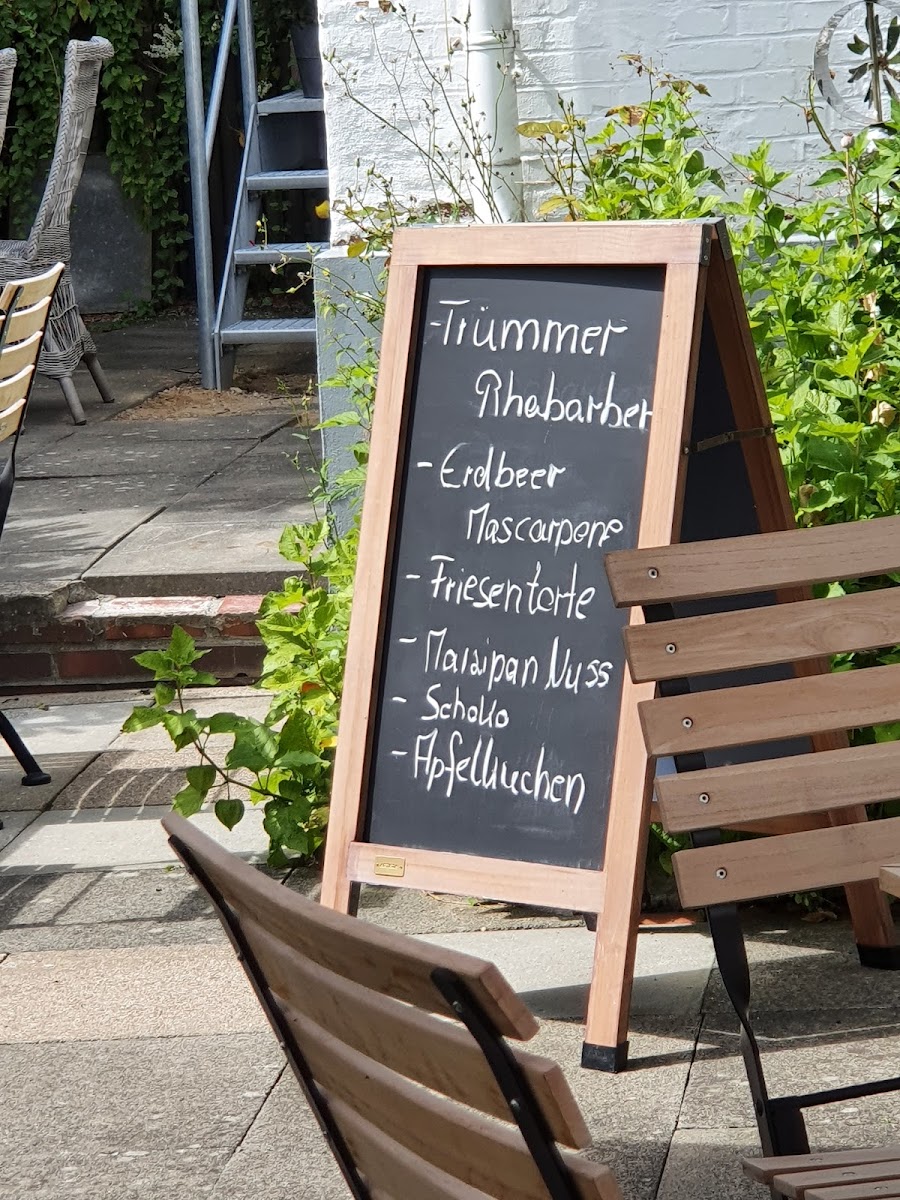 -Trümmer
Rhabarber
- Erdbeer
Mascarpone
- Friesentorte
- Marzipan Nuss
- Schoko
- Apfelkuchen